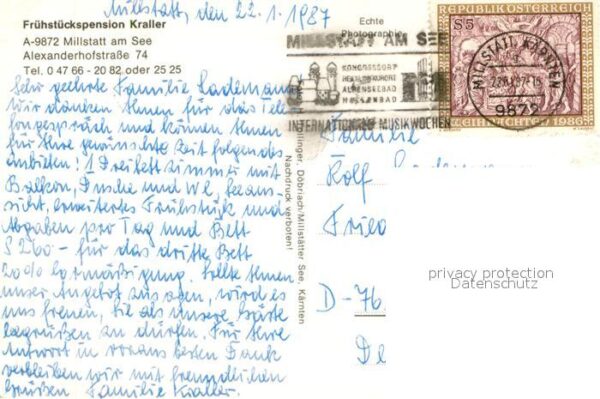 Millstatt, den 22.1.1987
Frühstückspension Kraller
A-9872 Millstatt am See
Alexanderhofstraße 74
Tel. 0 47 66 - 20 82 oder 25 25
Sehr geehrte Familie Lademann
wir danken Ihnen für das Tele
fongespräch und können Ihnen
für Ihre gewünschte Zeit folgendes
anbieten! 1 Dreibettzimmer mit
Balkon, Dusche und WC, Seeaus-
sicht, erweitertes Frühstück und
Abgaben pro Tag und Bett
S 260.- für das dritte Bett
20% Ermäßigung. Sollte Ihnen
unser Angebot zusagen, wird es
uns freuen, Sie als unsere Gäste
begrüßen zu dürfen. Für Ihre
Antwort im voraus besten Dank
verbleiben wir mit freundlichen
Grüßen Familie Kraller.
Echte
Photographie
MILLSTATT AM SEE
KONGRESSDORF
HEILKLIMAKURORT
ALPENSEEBAD
HALLENBAD
INTERNATIONALE MUSIKWOCHEN
REPUBLIK ÖSTERREICH
S 5
MILLSTATT, KÄRNTEN
9872
WEIHNACHTEN 1986
Döbriach/Millstätter See, Kärnten
Nachdruck verboten!
Familie
Rolf
Fried
D-76
De
privacy protection
Datenschutz